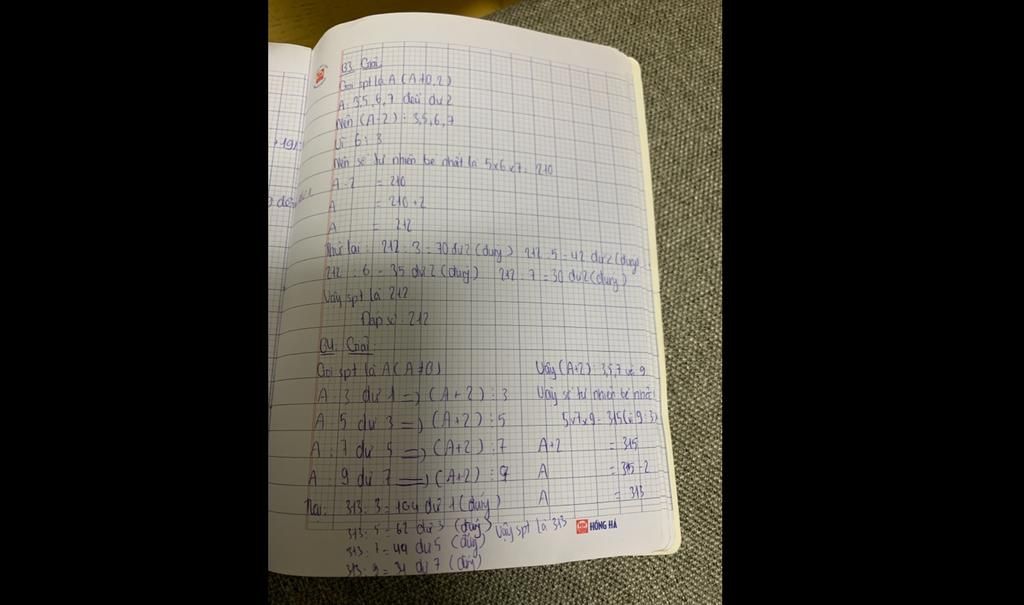 B3. Giải
Gọi spt là A (A≠0,2)
A : 3,5,6,7 đều dư 2
Nên (A-2) : 3,5,6,7
Vì 6 : 3
Nên số tự nhiên bé nhất là 5x6x7 = 210
A - 2 = 210
A = 210 + 2
A = 212
Thử lại : 212 : 3 = 70 dư 2 (đúng) 212 : 5 = 42 dư 2 (đúng)
212 : 6 = 35 dư 2 (đúng) 212 : 7 = 30 dư 2 (đúng)
Vậy spt là 212
Đáp số : 212
B4. Giải
Gọi spt là A (A≠0)
A : 3 dư 1 => (A+2) : 3
A : 5 dư 3 => (A+2) : 5
A : 7 dư 5 => (A+2) : 7
A : 9 dư 7 => (A+2) : 9
Vậy (A+2) : 3,5,7 và 9
Vậy số tự nhiên bé nhất
5x7x9 = 315 (vì 9 : 3)
A+2 = 315
A = 315 - 2
A = 313
313 : 3 = 104 dư 1 (đúng)
313 : 5 = 62 dư 3 (đúng)
313 : 7 = 44 dư 5 (đúng)
313 : 9 = 34 dư 7 (đúng)
Vậy spt là 313
HỒNG HÀ